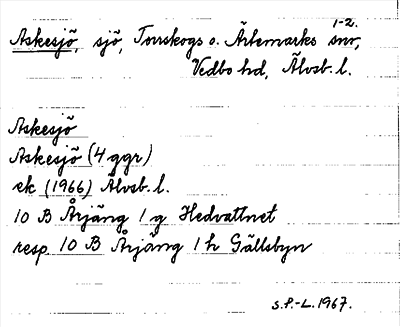 1-2.
Askesjö, sjö, Torrskogs o. Ärtemarks snr,
Vedbo hd, Älvsb. l.
Askesjö
Askesjö (4 ggr)
ek (1966) Älvsb. l.
10 B Årjäng 1 g Hedvattnet
resp. 10 B Årjäng 1 h Gällsbyn
S.F.-L. 1967.